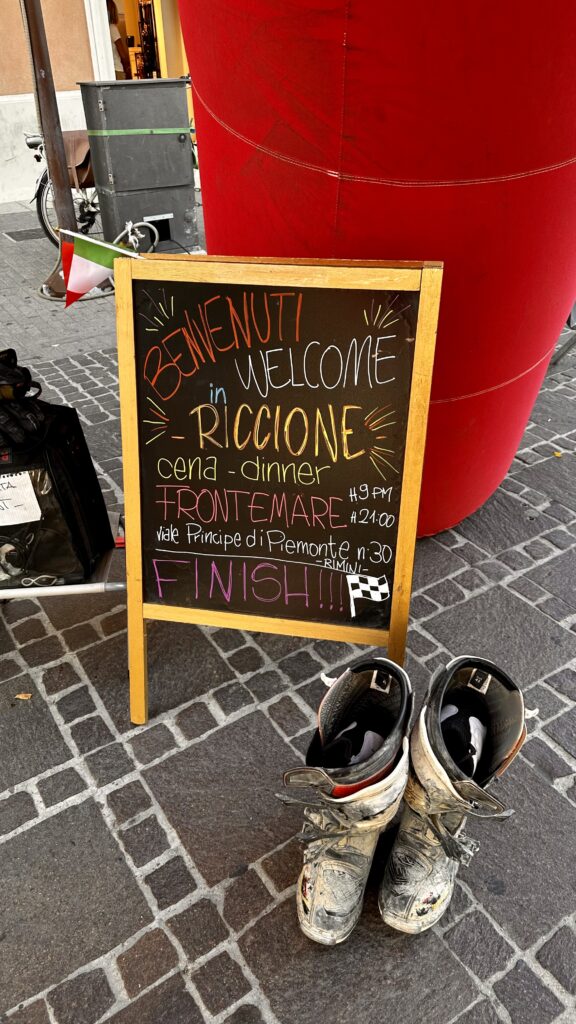 BENVENUTI
WELCOME
in
- RICCIONE -
cena - dinner
FRONTEMARE H9 PM
H21:00
viale Principe di Piemonte n·30
- RIMINI -
FINISH!!!